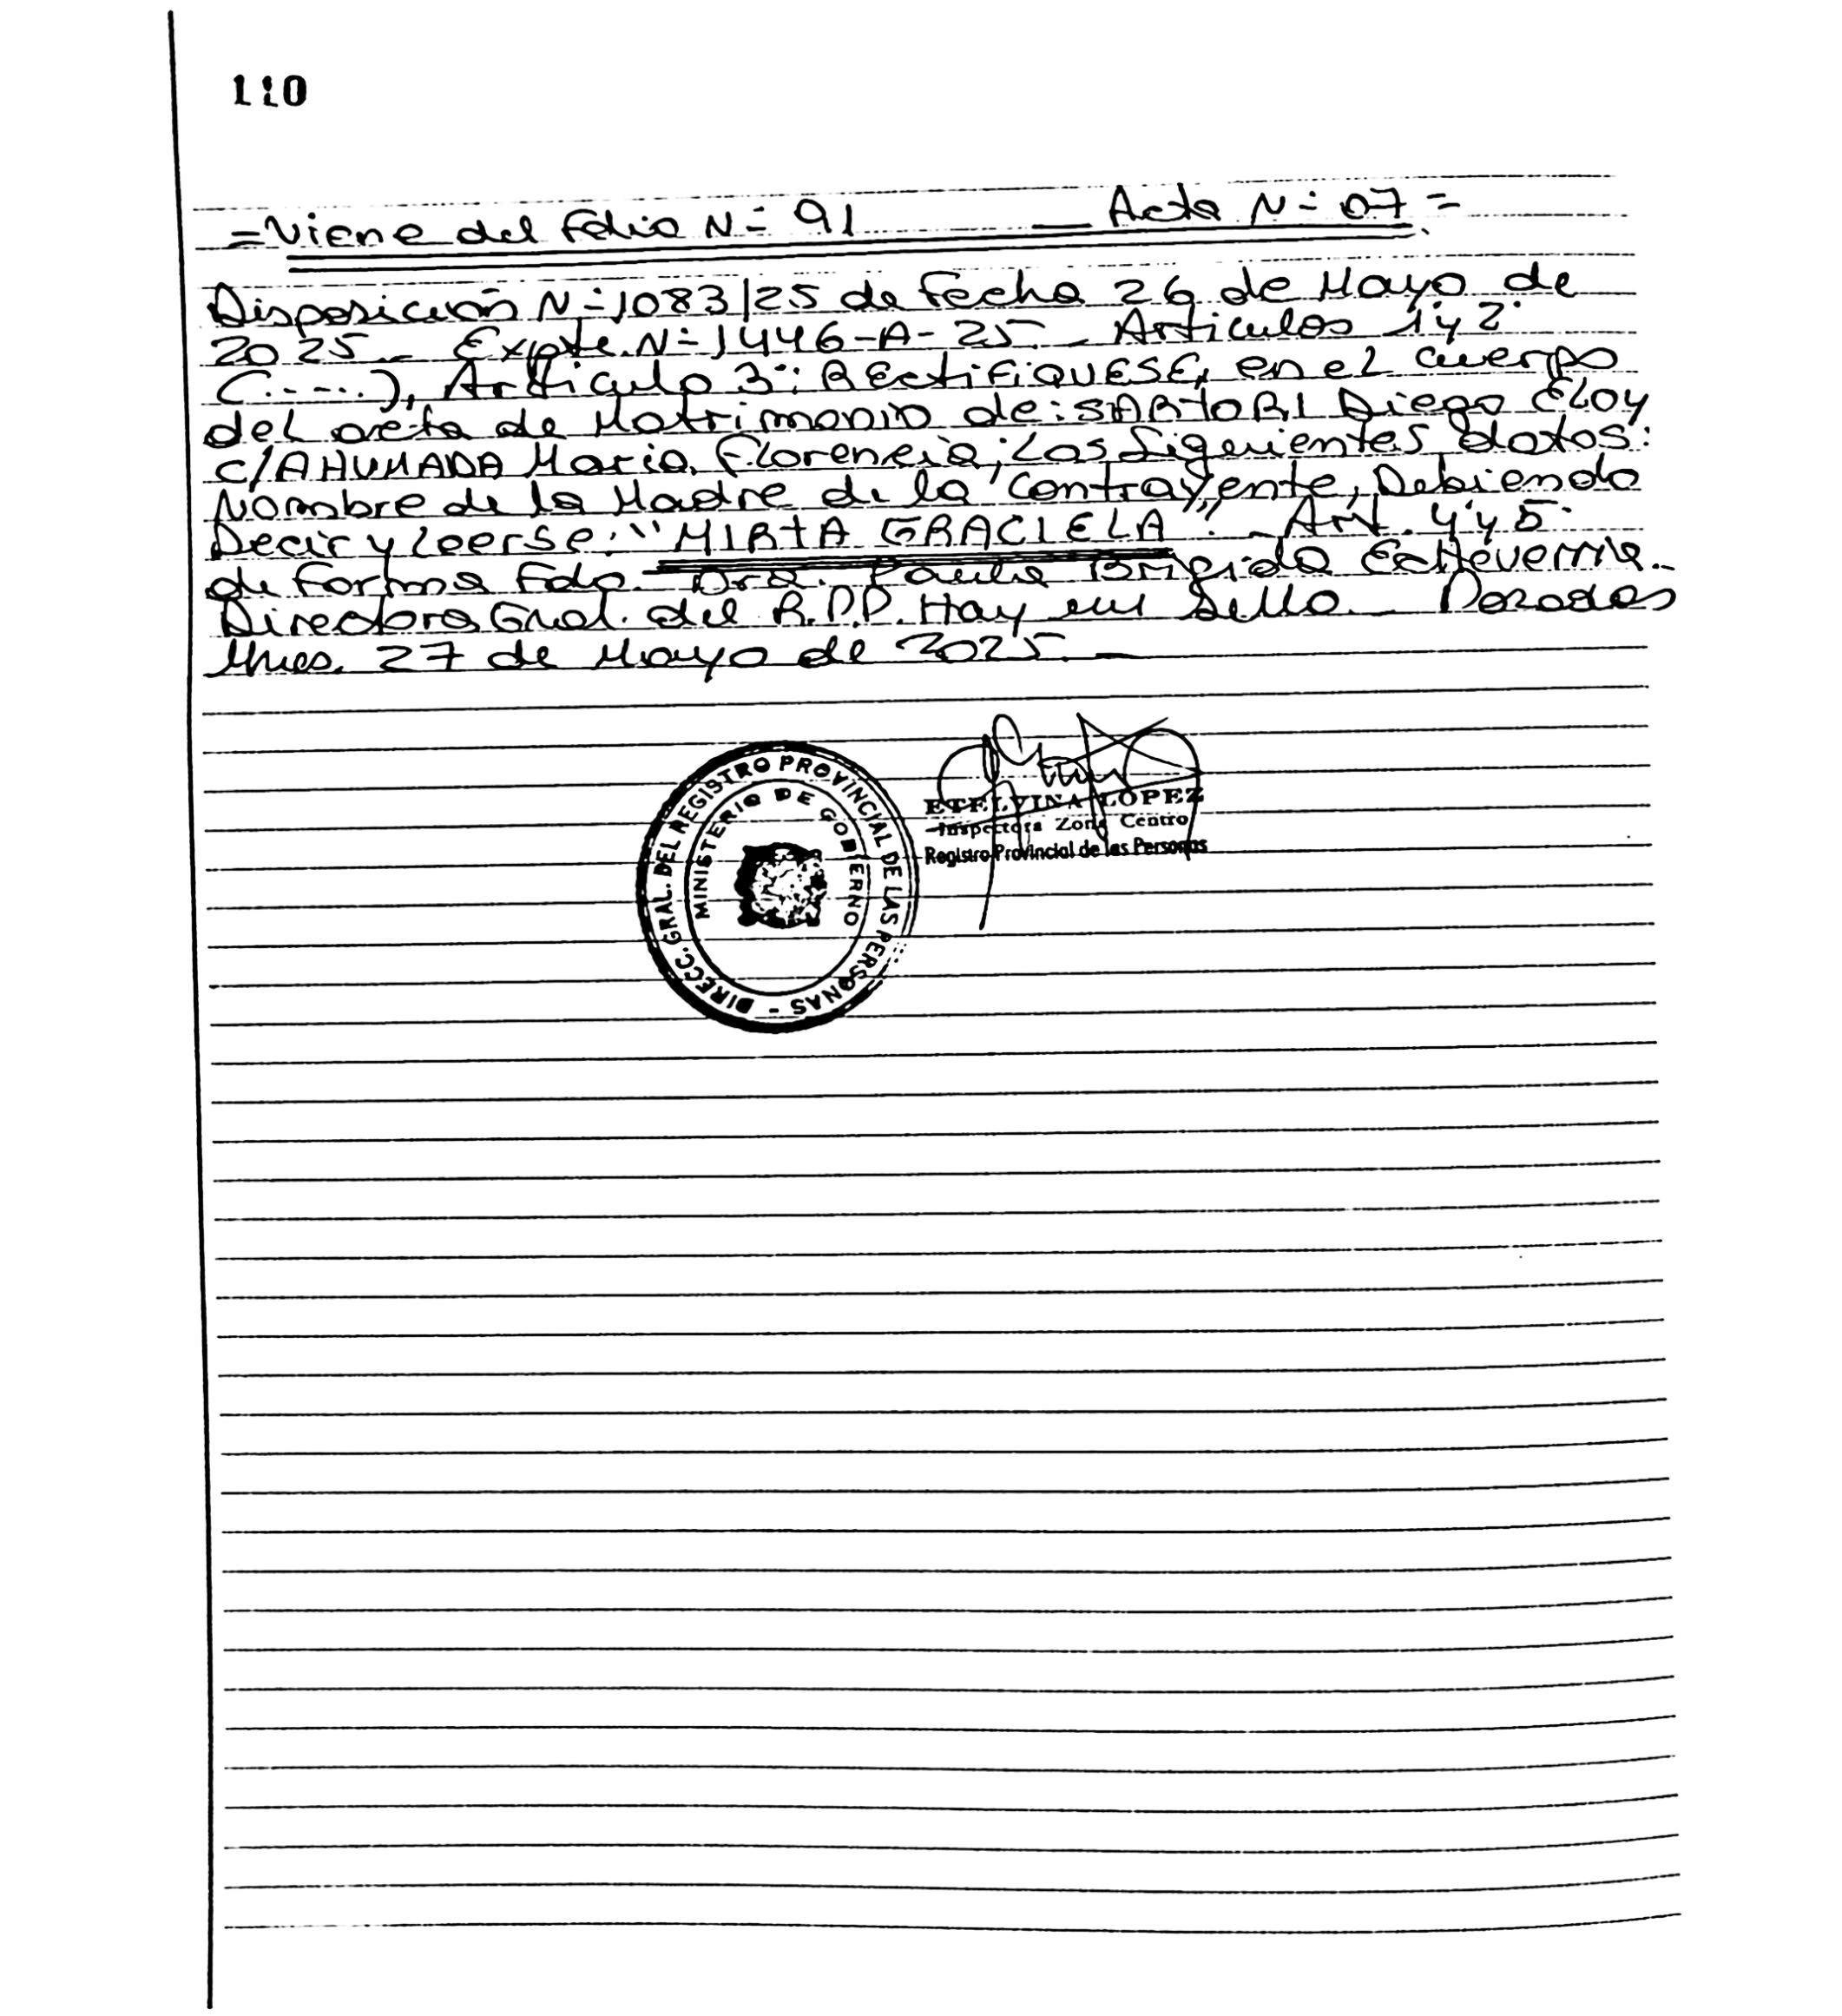 110
=Viene del Folio N= 91 — Acta N= 07=
Disposición N=1083/25 de Fecha 26 de Mayo de
2025._ Expte. N=1446-A-25._ Articulos 1 y 2
(.....), Articulo 3°: RECTIFIQUESE, en el cuerpo
del acta de Matrimonio de: SARTORI Diego Eloy
c/AHUMADA Maria Florencia; Los Siguientes datos:
Nombre de la Madre de la Contrayente, Debiendo
Decir y Leerse: "MIRTA GRACIELA". _ Art. 4 y 5
de Forma Fdo. Dra. Paula Brigida Echeverria._
Directora Gral. del R.P.P. Hay un Sello._ Posadas
Mnes. 27 de Mayo de 2025. —
DIRECC. GRAL. DEL REGISTRO PROVINCIAL DE LAS PERSONAS -
MINISTERIO DE GOBIERNO
ETELVINA LOPEZ
Inspectora Zona Centro
Registro Provincial de las Personas